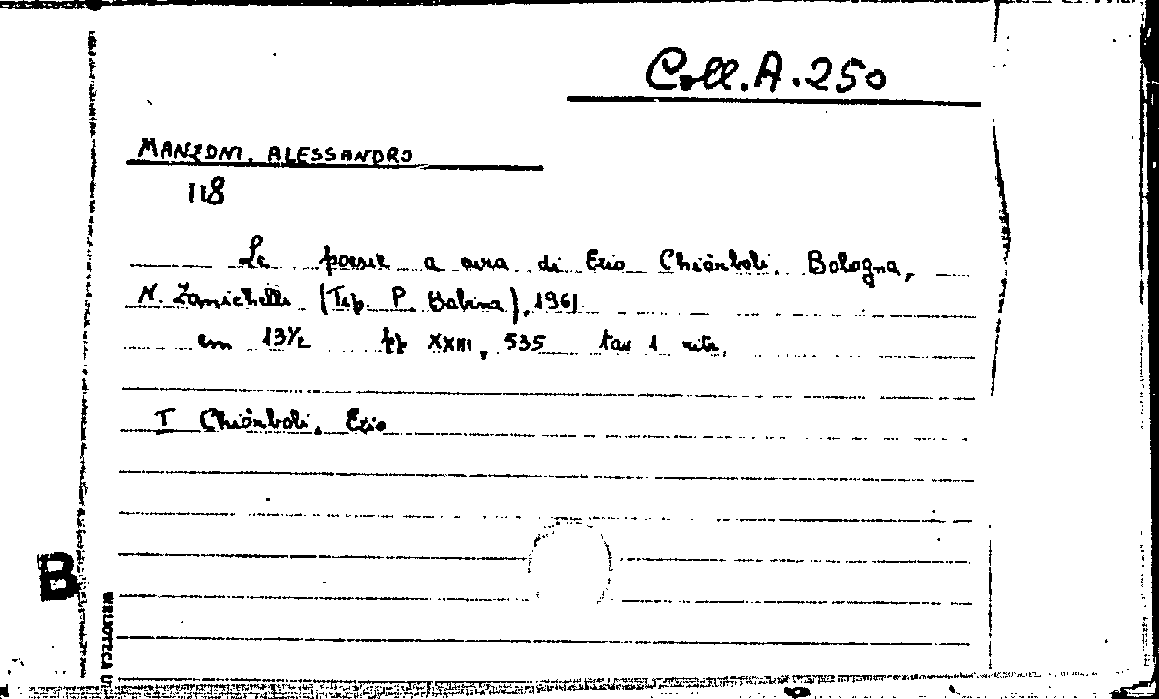 Coll. A. 250
MANZONI, ALESSANDRO
118
Le poesie a cura di Ezio Chiòrboli. Bologna,
N. Zanichelli (Tip. P. Galeno), 1961
cm 13½ pp XXIII, 535 tav 1 ritr.
I Chiòrboli, Ezio
B
BIBLIOTECA U